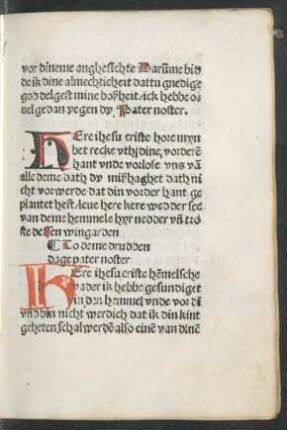 vor dineme anghesichte Darũme bid
de ik dine almechticheit dattu gnedige
god delgest mine boszheit / ick hebbe o‍uel gedan yegen dy Pater noster.
HEre ihesu criste hore myn
het recke vth dine vorderẽ
hant vnde vorlose vns vã
alle deme dath dy mishaghet dath nicht vorwerde dat din vorder hant ge
plantet hest / leue here kere wedder see
van deme hemmele hyr nedder vñ tro
ste dessen wingarden
To deme drudden
dage pater noster
HEre ihesu criste hẽmelsche
vader ik hebbe gesundiget
in den hemmel vnde vor di
vnd bin nicht werdich dat ik din kint
geheten schal werdẽ also einẽ van dinẽ